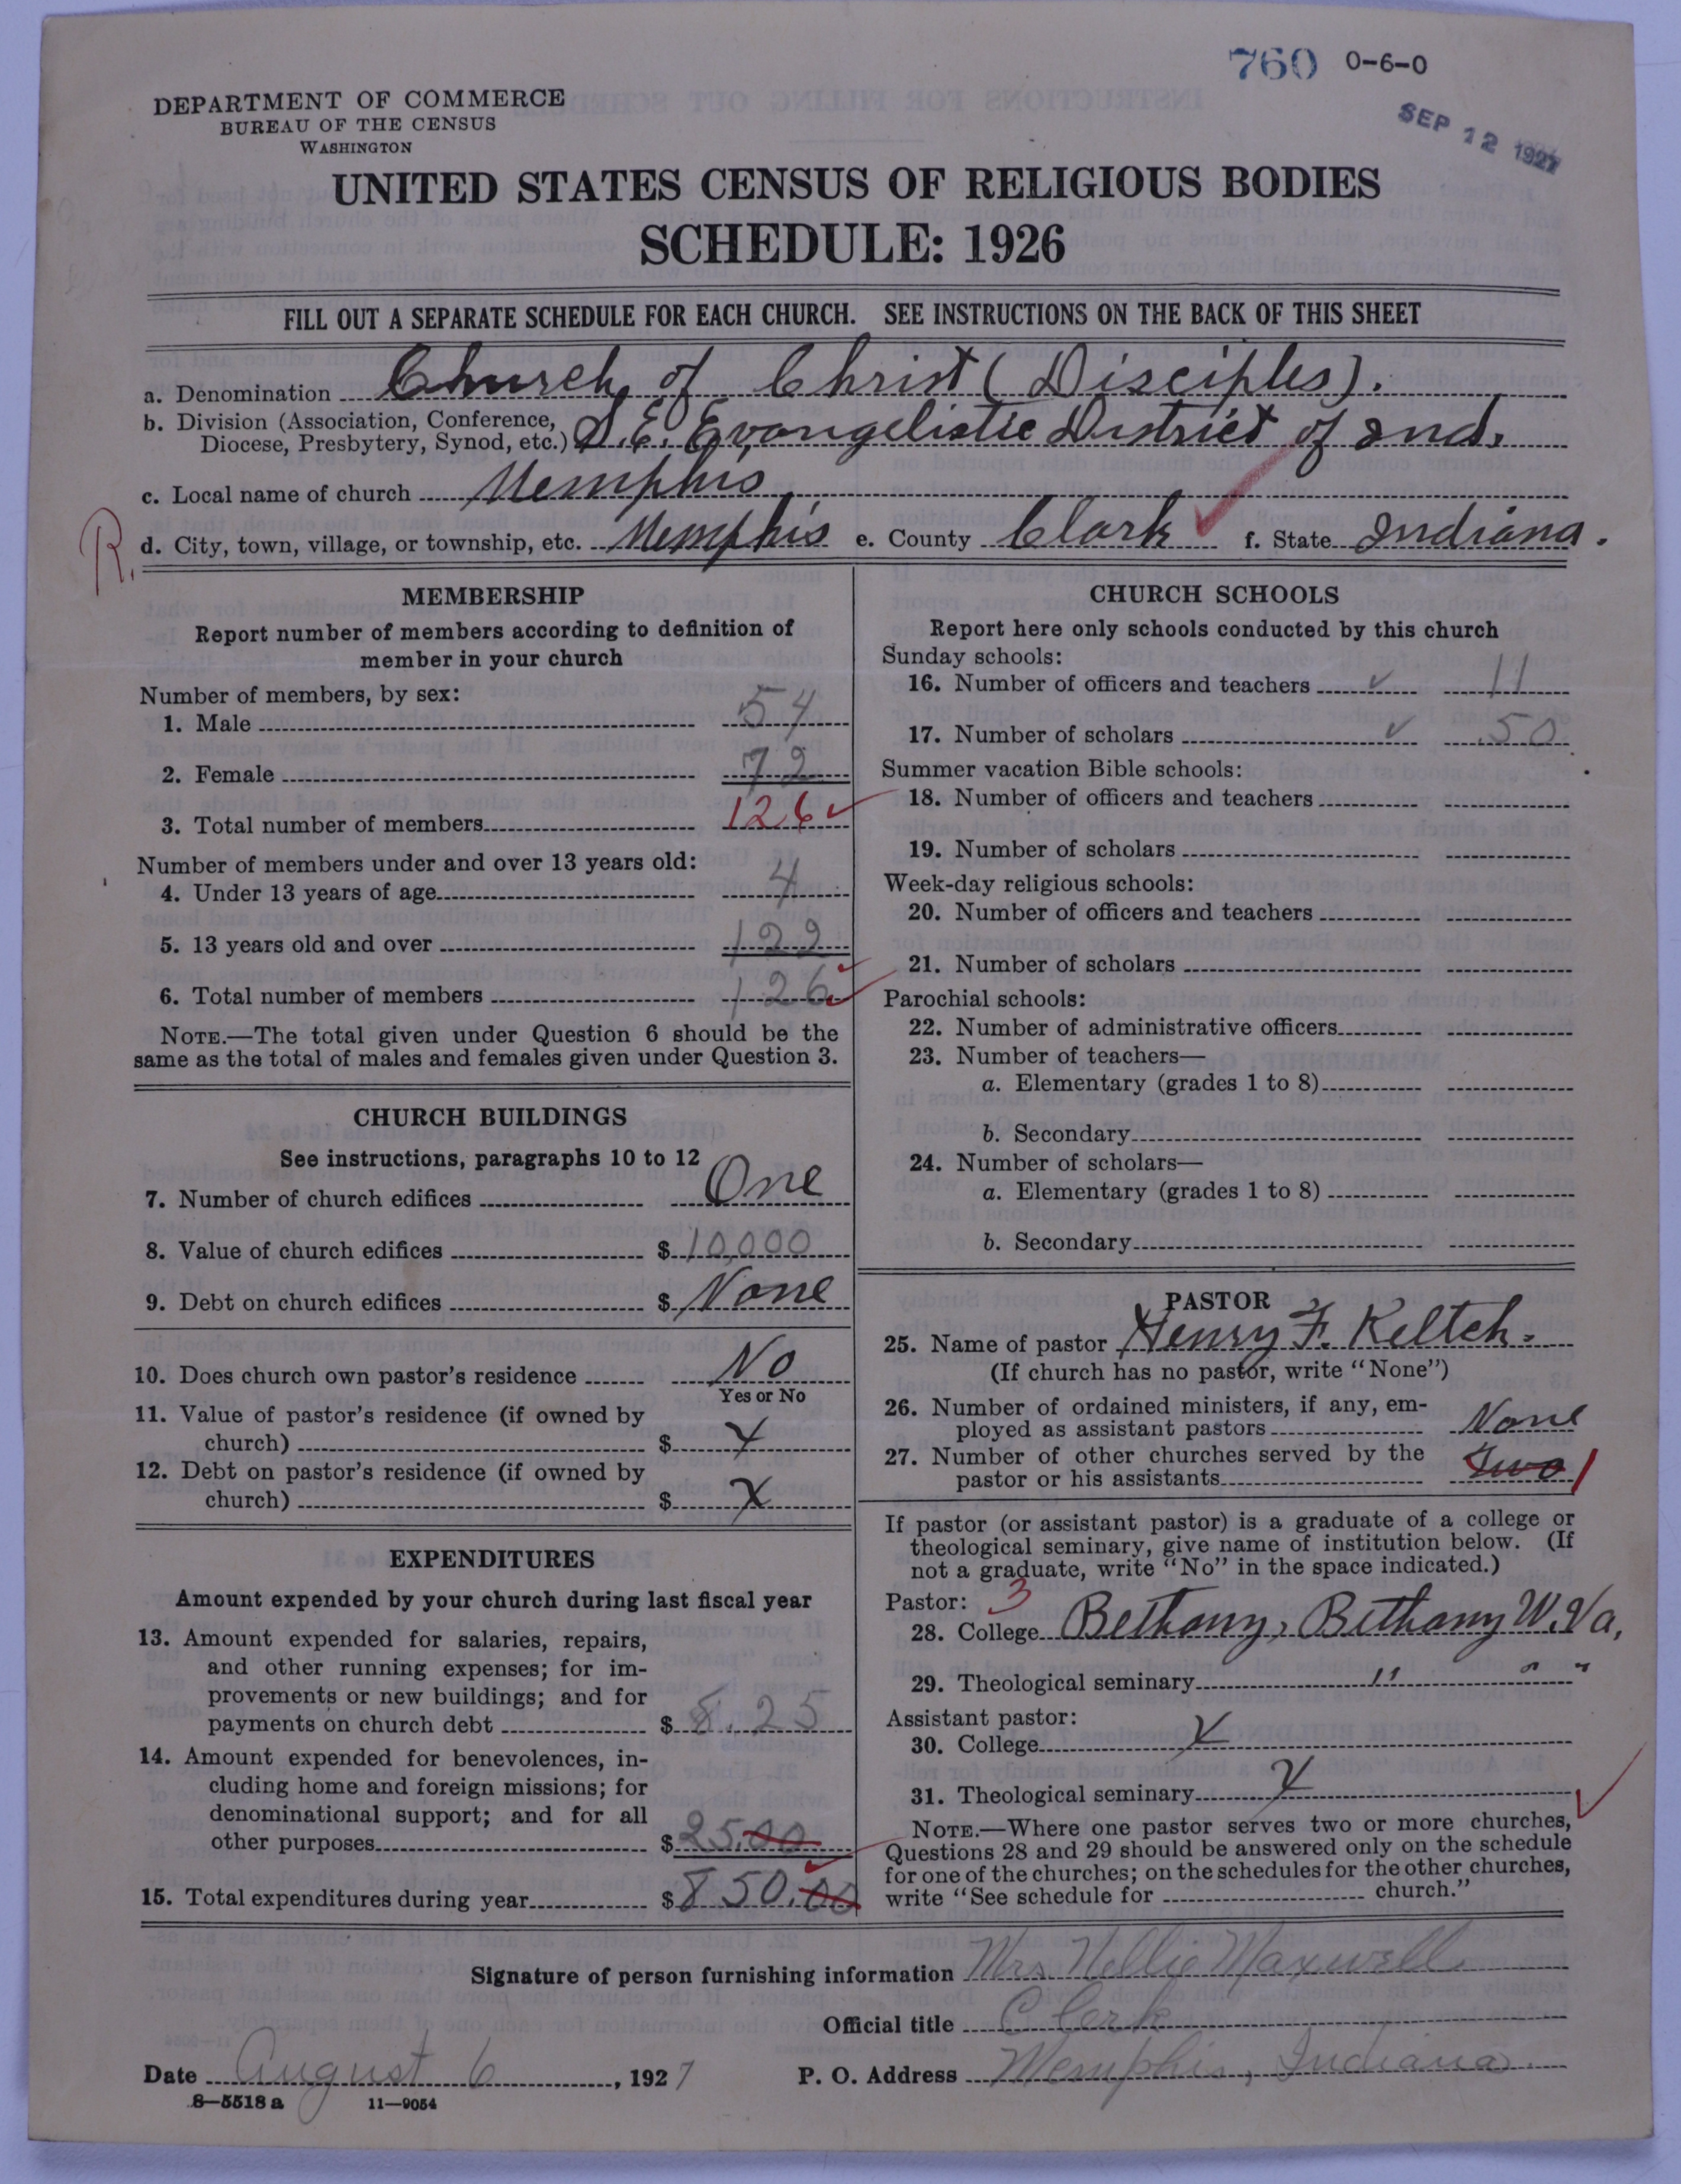 760 0-6-0
SEP 12 1927
DEPARTMENT OF COMMERCE
BUREAU OF THE CENSUS
WASHINGTON
UNITED STATES CENSUS OF RELIGIOUS BODIES
SCHEDULE: 1926
FILL OUT A SEPARATE SCHEDULE FOR EACH CHURCH. SEE INSTRUCTIONS ON THE BACK OF THIS SHEET
a. Denomination Church of Christ (Disciples).
b. Division (Association, Conference,
Diocese, Presbytery, Synod, etc.) S.E. Evangelistic District of Ind.
c. Local name of church Memphis
R. d. City, town, village, or township, etc. Memphis e. County Clark f. State Indiana.
MEMBERSHIP
Report number of members according to definition of
member in your church
Number of members, by sex:
1. Male 54
2. Female 72
3. Total number of members 126
Number of members under and over 13 years old:
4. Under 13 years of age 4
5. 13 years old and over 122
6. Total number of members 126
NOTE.—The total given under Question 6 should be the
same as the total of males and females given under Question 3.
CHURCH BUILDINGS
See instructions, paragraphs 10 to 12
7. Number of church edifices One
8. Value of church edifices $ 10,000
9. Debt on church edifices $ None
10. Does church own pastor's residence No
Yes or No
11. Value of pastor's residence (if owned by
church) $ x
12. Debt on pastor's residence (if owned by
church) $ x
EXPENDITURES
Amount expended by your church during last fiscal year
13. Amount expended for salaries, repairs,
and other running expenses; for im-
provements or new buildings; and for
payments on church debt $ 8.25
14. Amount expended for benevolences, in-
cluding home and foreign missions; for
denominational support; and for all
other purposes $ 25.00
15. Total expenditures during year $ 850.00
CHURCH SCHOOLS
Report here only schools conducted by this church
Sunday schools:
16. Number of officers and teachers ✓ 11
17. Number of scholars ✓ 50
Summer vacation Bible schools:
18. Number of officers and teachers
19. Number of scholars
Week-day religious schools:
20. Number of officers and teachers
21. Number of scholars
Parochial schools:
22. Number of administrative officers
23. Number of teachers—
a. Elementary (grades 1 to 8)
b. Secondary
24. Number of scholars—
a. Elementary (grades 1 to 8)
b. Secondary
PASTOR
25. Name of pastor Henry F. Keltch.
(If church has no pastor, write "None")
26. Number of ordained ministers, if any, em-
ployed as assistant pastors None
27. Number of other churches served by the
pastor or his assistants Two 1
If pastor (or assistant pastor) is a graduate of a college or
theological seminary, give name of institution below. (If
not a graduate, write "No" in the space indicated.)
Pastor: 3
28. College Bethany, Bethany W.Va.
29. Theological seminary " " "
Assistant pastor:
30. College x
31. Theological seminary x
NOTE.—Where one pastor serves two or more churches,
Questions 28 and 29 should be answered only on the schedule
for one of the churches; on the schedules for the other churches,
write "See schedule for church."
Signature of person furnishing information Mrs Nellie Maxwell
Official title Clerk
Date August 6, 1927 P. O. Address Memphis, Indiana
8—5518 a 11—9054